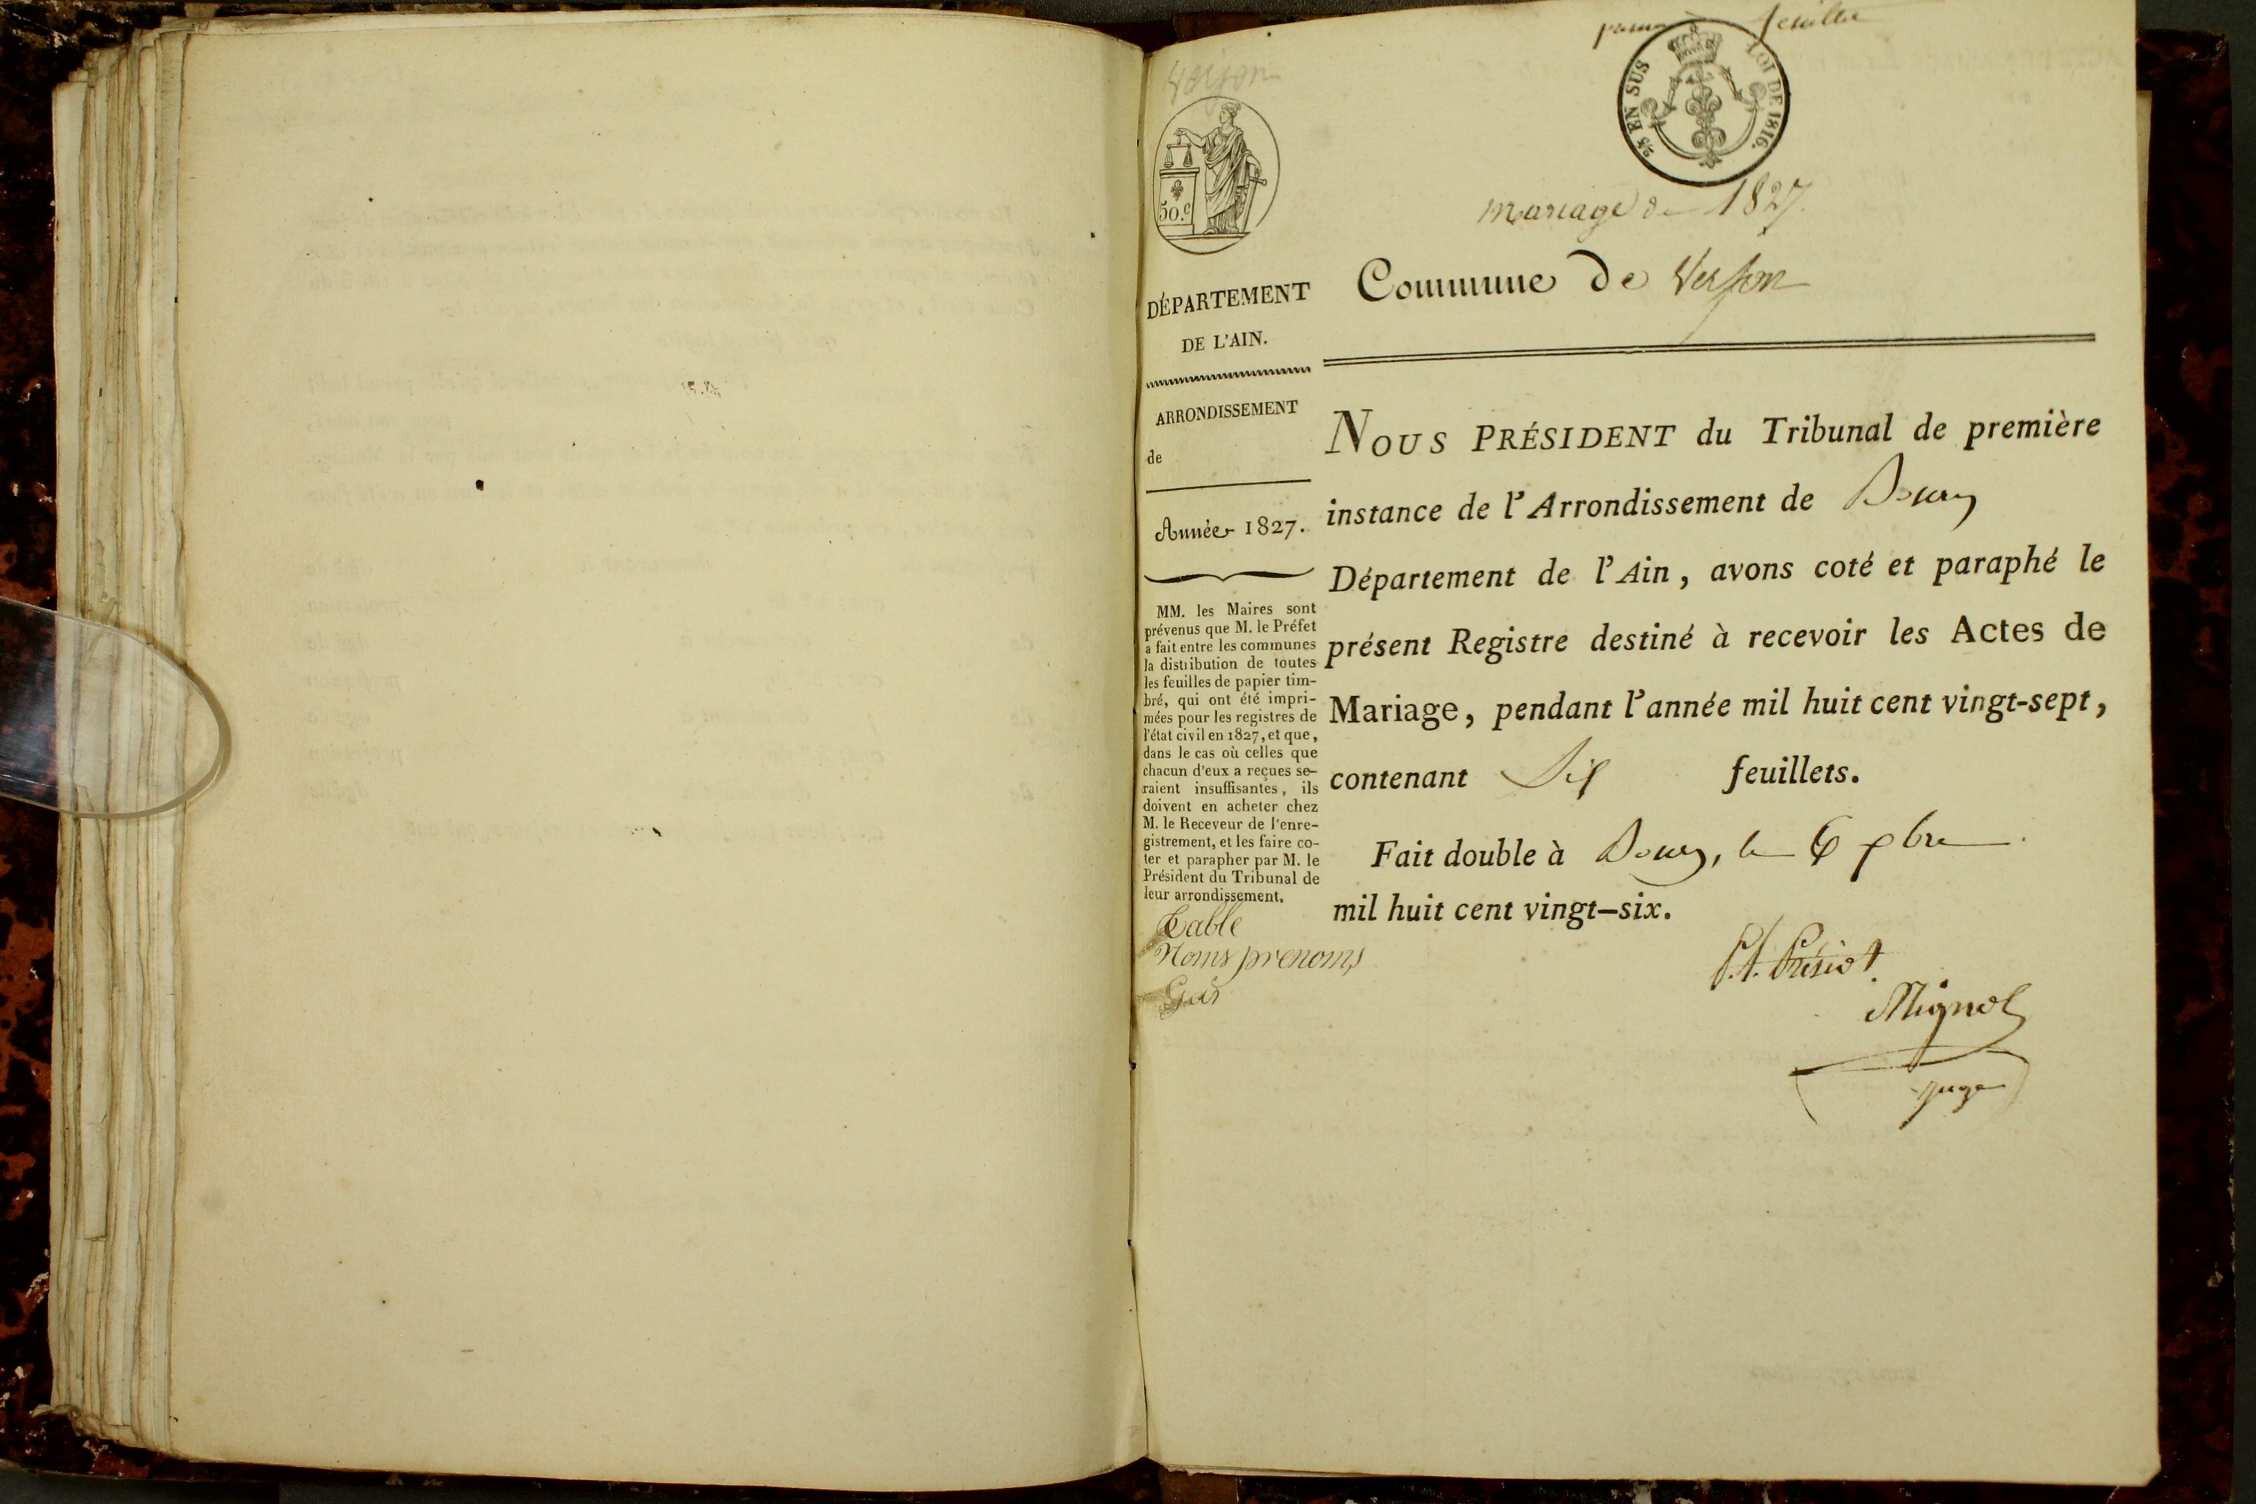 feuillet
25 EN SUS
LOI DE 1816.
50.c
mariage de 1827.
Commune de Verjon
Verjon
DÉPARTEMENT
DE L'AIN.
ARRONDISSEMENT
de
Année 1827.
MM. les Maires sont
prévenus que M. le Préfet
a fait entre les communes
la distribution de toutes
les feuilles de papier tim-
bré, qui ont été impri-
mées pour les registres de
l'état civil en 1827, et que,
dans le cas où celles que
chacun d'eux a reçues se-
raient insuffisantes, ils
doivent en acheter chez
M. le Receveur de l'enre-
gistrement, et les faire co-
ter et parapher par M. le
Président du Tribunal de
leur arrondissement.
Table
Noms prenoms
NOUS PRÉSIDENT du Tribunal de première
instance de l'Arrondissement de Bourg
Département de l'Ain, avons coté et paraphé le
présent Registre destiné à recevoir les Actes de
Mariage, pendant l'année mil huit cent vingt-sept,
contenant Six feuillets.
Fait double à Bourg, le 6 xbre
mil huit cent vingt-six.
Mignot
juge